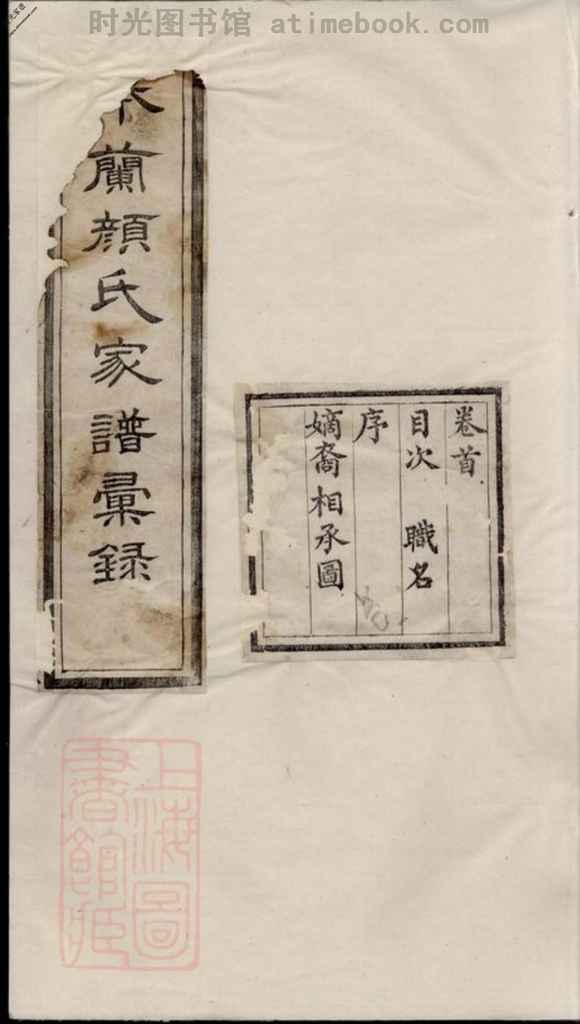 时光图书馆 atimebook.com
蘭顏氏家譜彙錄
卷首
目次 職名
序
嫡裔相承圖
上海圖
書館藏